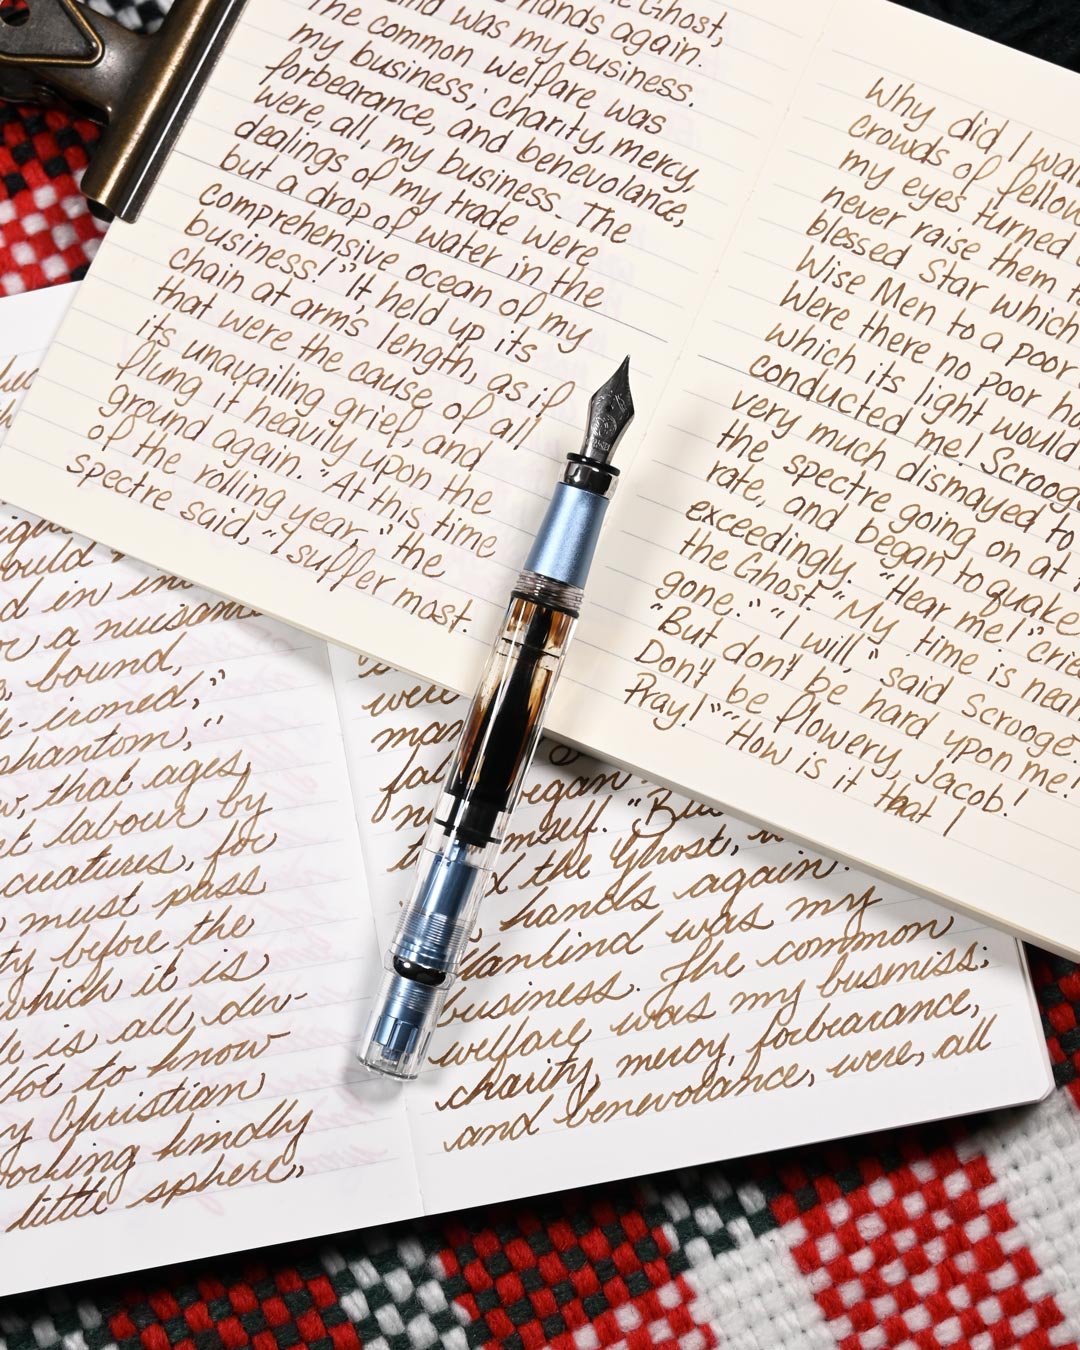 Ghost,
hands again.
was my business.
The common welfare was
my business; charity, mercy,
forbearance, and benevolance,
were, all, my business. The
dealings of my trade were
but a drop of water in the
comprehensive ocean of my
business!" It held up its
chain at arms length, as if
that were the cause of all
its unavailing grief, and
flung it heavily upon the
ground again. "At this time
of the rolling year," the
spectre said, "I suffer most.
Why did I
crowds of
my eyes turned
never raise them
blessed Star which
Wise Men to a poor
Were there no poor
which its light would
conducted me! Scrooge
very much dismayed to
the spectre going on at
rate, and began to quake
exceedingly. "Hear me!"
the Ghost. "My time is
gone." "I will," said Scrooge.
"But don't be hard upon me!
Don't be flowery, Jacob!
Pray!" "How is it that I
in
a nuisance
bound,
-ironed,"
phantom,"
that ages
labour by
creatures, for
must pass
before the
which it is
is all dev-
Not to know
Christian
working kindly
little sphere,
were
himself. "Bu
the Ghost,
hands again.
Mankind was my
business. The common
welfare was my busmiss;
charity, mercy, forbearance,
and benevolance, were, all